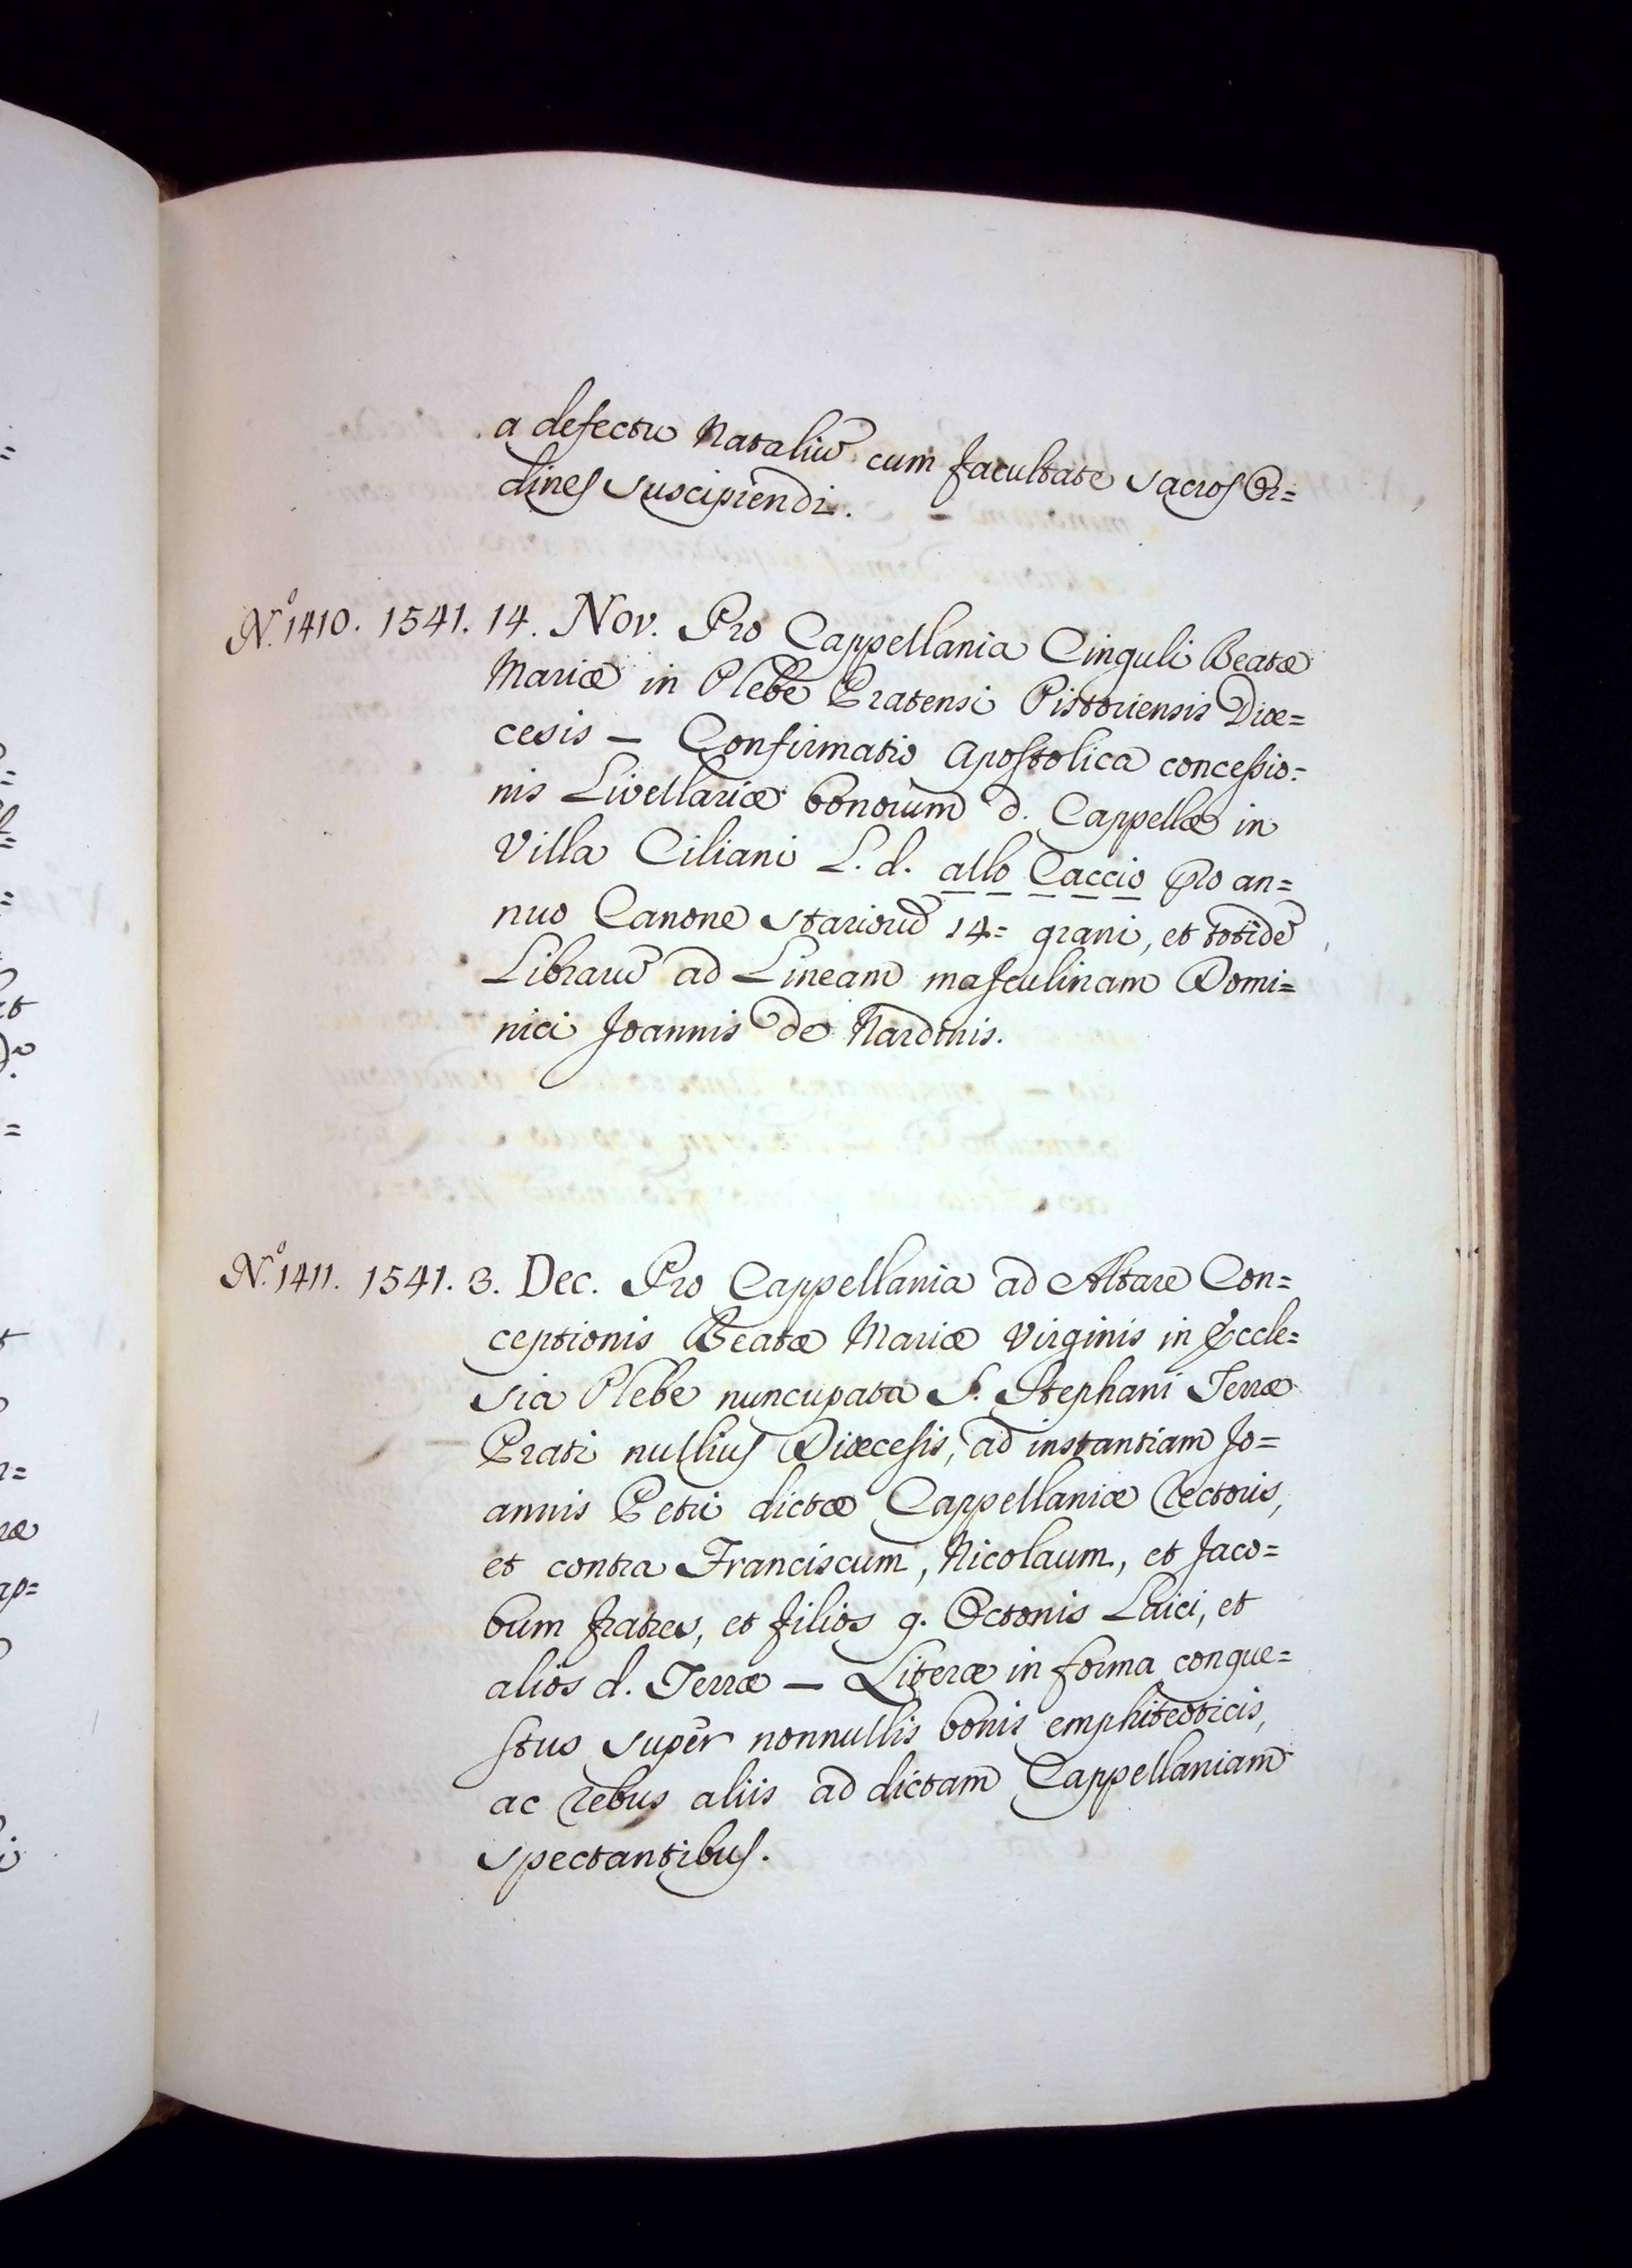 a defectu Nataliũ cum facultate sacros Or=
dines suscipiendi.
N.º 1410. 1541. 14. Nov. Pro Cappellania Cinguli Beatæ
Mariæ in Plebe Pratensi Pistoriensis Diœ=
cesis — Confirmatio Apostolica concessio=
nis Livellariæ bonorum d. Cappellæ in
Villa Ciliani L. d. allo Caccio pro an=
nuo Canone stariorũ 14= grani, et totidẽ
Librarũ ad Lineam masculinam Domi=
nici Joannis de Nardinis.
N.º 1411. 1541. 3. Dec. Pro Cappellania ad Altare Con=
ceptionis Beatæ Mariæ Virginis in Eccle=
sia Plebe nuncupata S. Stephani Terræ
Prati nullius Diœcesis, ad instantiam Jo=
annis Petri dictæ Cappellaniæ Rectoris,
et contra Franciscum, Nicolaum, et Jaco=
bum fratres, et filios q. Octonis Laici, et
alios d. Terræ — Literæ in forma conque=
stus super nonnullis bonis emphiteoticis,
ac rebus aliis ad dictam Cappellaniam
spectantibus.